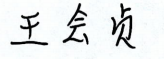 王会贞